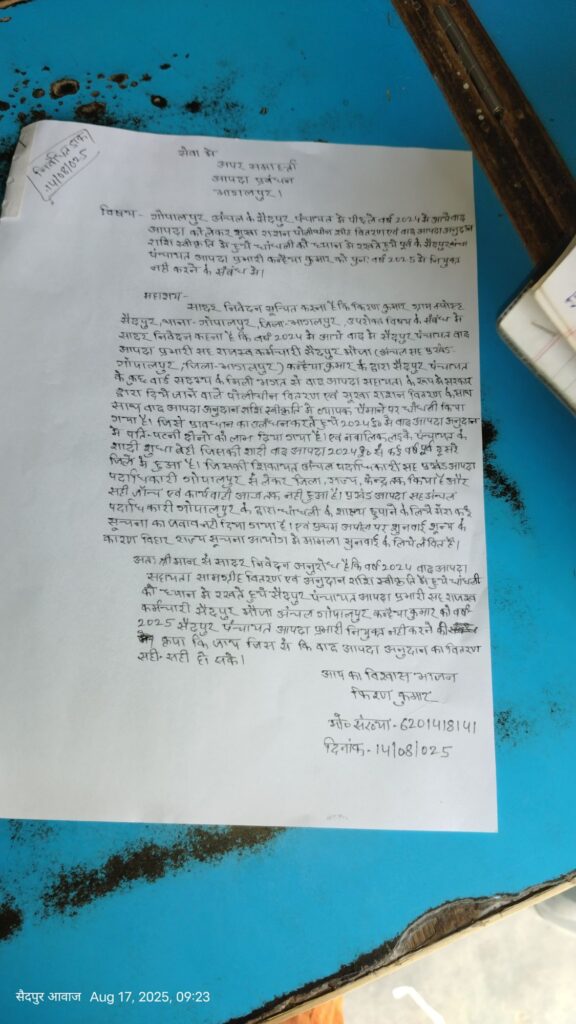 निबंधित डाक
14/08/025
सेवा में
अपर समाहर्ता
आपदा प्रबंधन
भागलपुर।
विषय - गोपालपुर अंचल के सैदपुर पंचायत में पिछले वर्ष 2024 में आये बाढ़
आपदा को लेकर सुखा राशन पोलीथीन शीट वितरण एवं बाढ़ आपदा अनुदान
राशि स्वीकृति में हुये धांधली को ध्यान में रखते हुये पूर्व के सैदपुर
पंचायत आपदा प्रभारी कन्हैया कुमार को पुनः वर्ष 2025 में नियुक्त
नहीं करने के संबंध में।
महाशय-
सादर निवेदन सूचित करना है कि किरण कुमार ग्राम पोस्ट
सैदपुर, थाना-गोपालपुर, जिला-भागलपुर, उपरोक्त विषय के संबंध में
सादर निवेदन करना है कि वर्ष 2024 में आये बाढ़ में सैदपुर पंचायत बाढ़
आपदा प्रभारी सह राजस्व कर्मचारी सैदपुर मौजा (अंचल सह प्रखंड-
गोपालपुर, जिला-भागलपुर) कन्हैया कुमार के द्वारा सैदपुर पंचायत
के कुछ वार्ड सदस्य के मिली भगत से बाढ़ आपदा सहायता के रूप में सरकार
द्वारा दिये जाने वाले पोलीथीन वितरण एवं सुखा राशन वितरण के साथ
साथ बाढ़ आपदा अनुदान राशि स्वीकृति में व्यापक पैमाने पर धांधली किया
गया है। जिसे प्रावधान का उलंघन करते हुये 2024 ई० में बाढ़ आपदा अनुदान
में पति-पत्नी दोनों को लाभ दिया गया है। एवं नबालिक लड़के, पंचायत के
शादी शुदा बेटी जिसकी शादी बाढ़ आपदा 2024 ई० से कई वर्ष पूर्व दूसरे
जिले में हुआ है। जिसकी शिकायत अंचल पदाधिकारी सह प्रखंड आपदा
पदाधिकारी गोपालपुर से लेकर जिला, राज्य, केन्द्र तक किया है और
सही जाँच एवं कार्यवाही आज तक नहीं हुआ है। प्रखंड आपदा सह अंचल
पदाधिकारी गोपालपुर के द्वारा धांधली के साक्ष्य छुपाने के लिये मेरा कई
सूचना का जवाब नहीं दिया गया है। एवं प्रथम अपील पर सुनवाई शून्य के
कारण बिहार राज्य सूचना आयोग में मामला सुनवाई के लिये लंबित है।
अतः श्रीमान से सादर निवेदन अनुरोध है कि वर्ष 2024 बाढ़ आपदा
सहायता सामग्री वितरण एवं अनुदान राशि स्वीकृति में हुये धांधली
को ध्यान में रखते हुये सैदपुर पंचायत आपदा प्रभारी सह राजस्व
कर्मचारी सैदपुर मौजा अंचल गोपालपुर कन्हैया कुमार को वर्ष
2025 सैदपुर पंचायत आपदा प्रभारी नियुक्त नहीं करने की
कृपा कि जाय जिस से कि बाढ़ आपदा अनुदान का वितरण
सही-सही हो सके।
आप का विश्वास भाजन
किरण कुमार
मो० संख्या-6201418141
दिनांक-14/08/025
सैदपुर आवाज Aug 17, 2025, 09:23